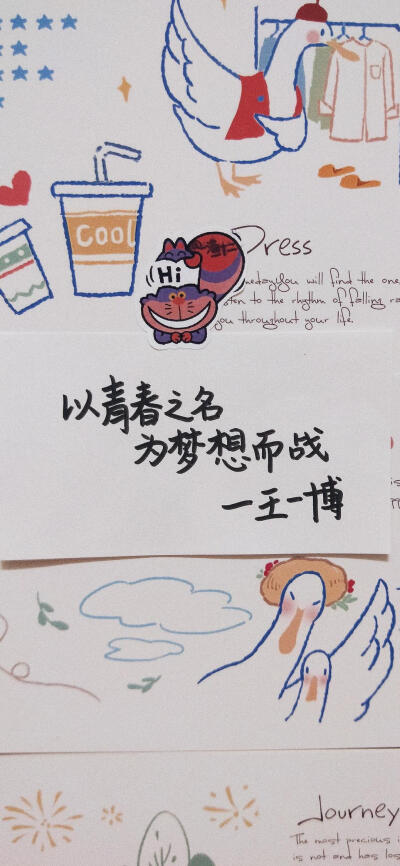 Cool
Hi
Dress
you will find the one
to the rhythm of falling
you throughout your life.
以青春之名
为梦想而战
一王一博
Journey
The most precious
is not and has